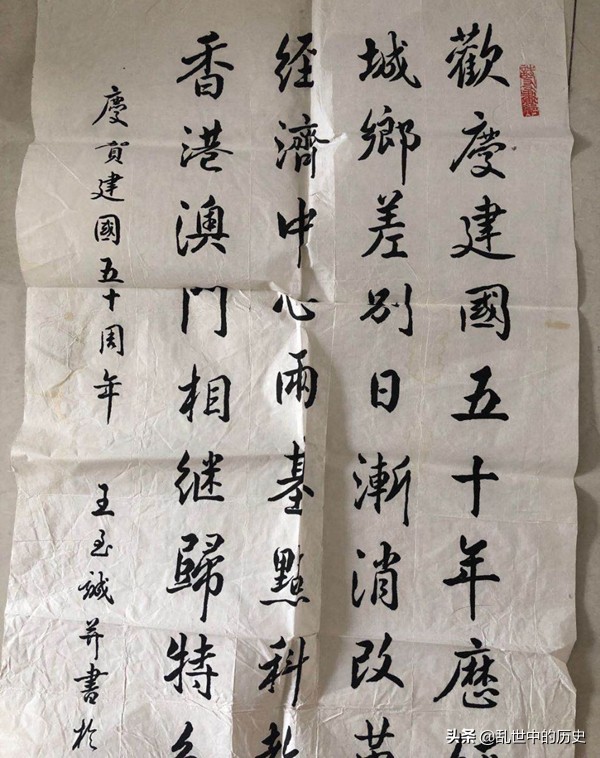 歡慶建國五十年歷
城鄉差別日漸消改革
經濟中心兩基點科教
香港澳門相继歸特色
慶賀建國五十周年 王玉誠并書於
头条 @乱世中的历史